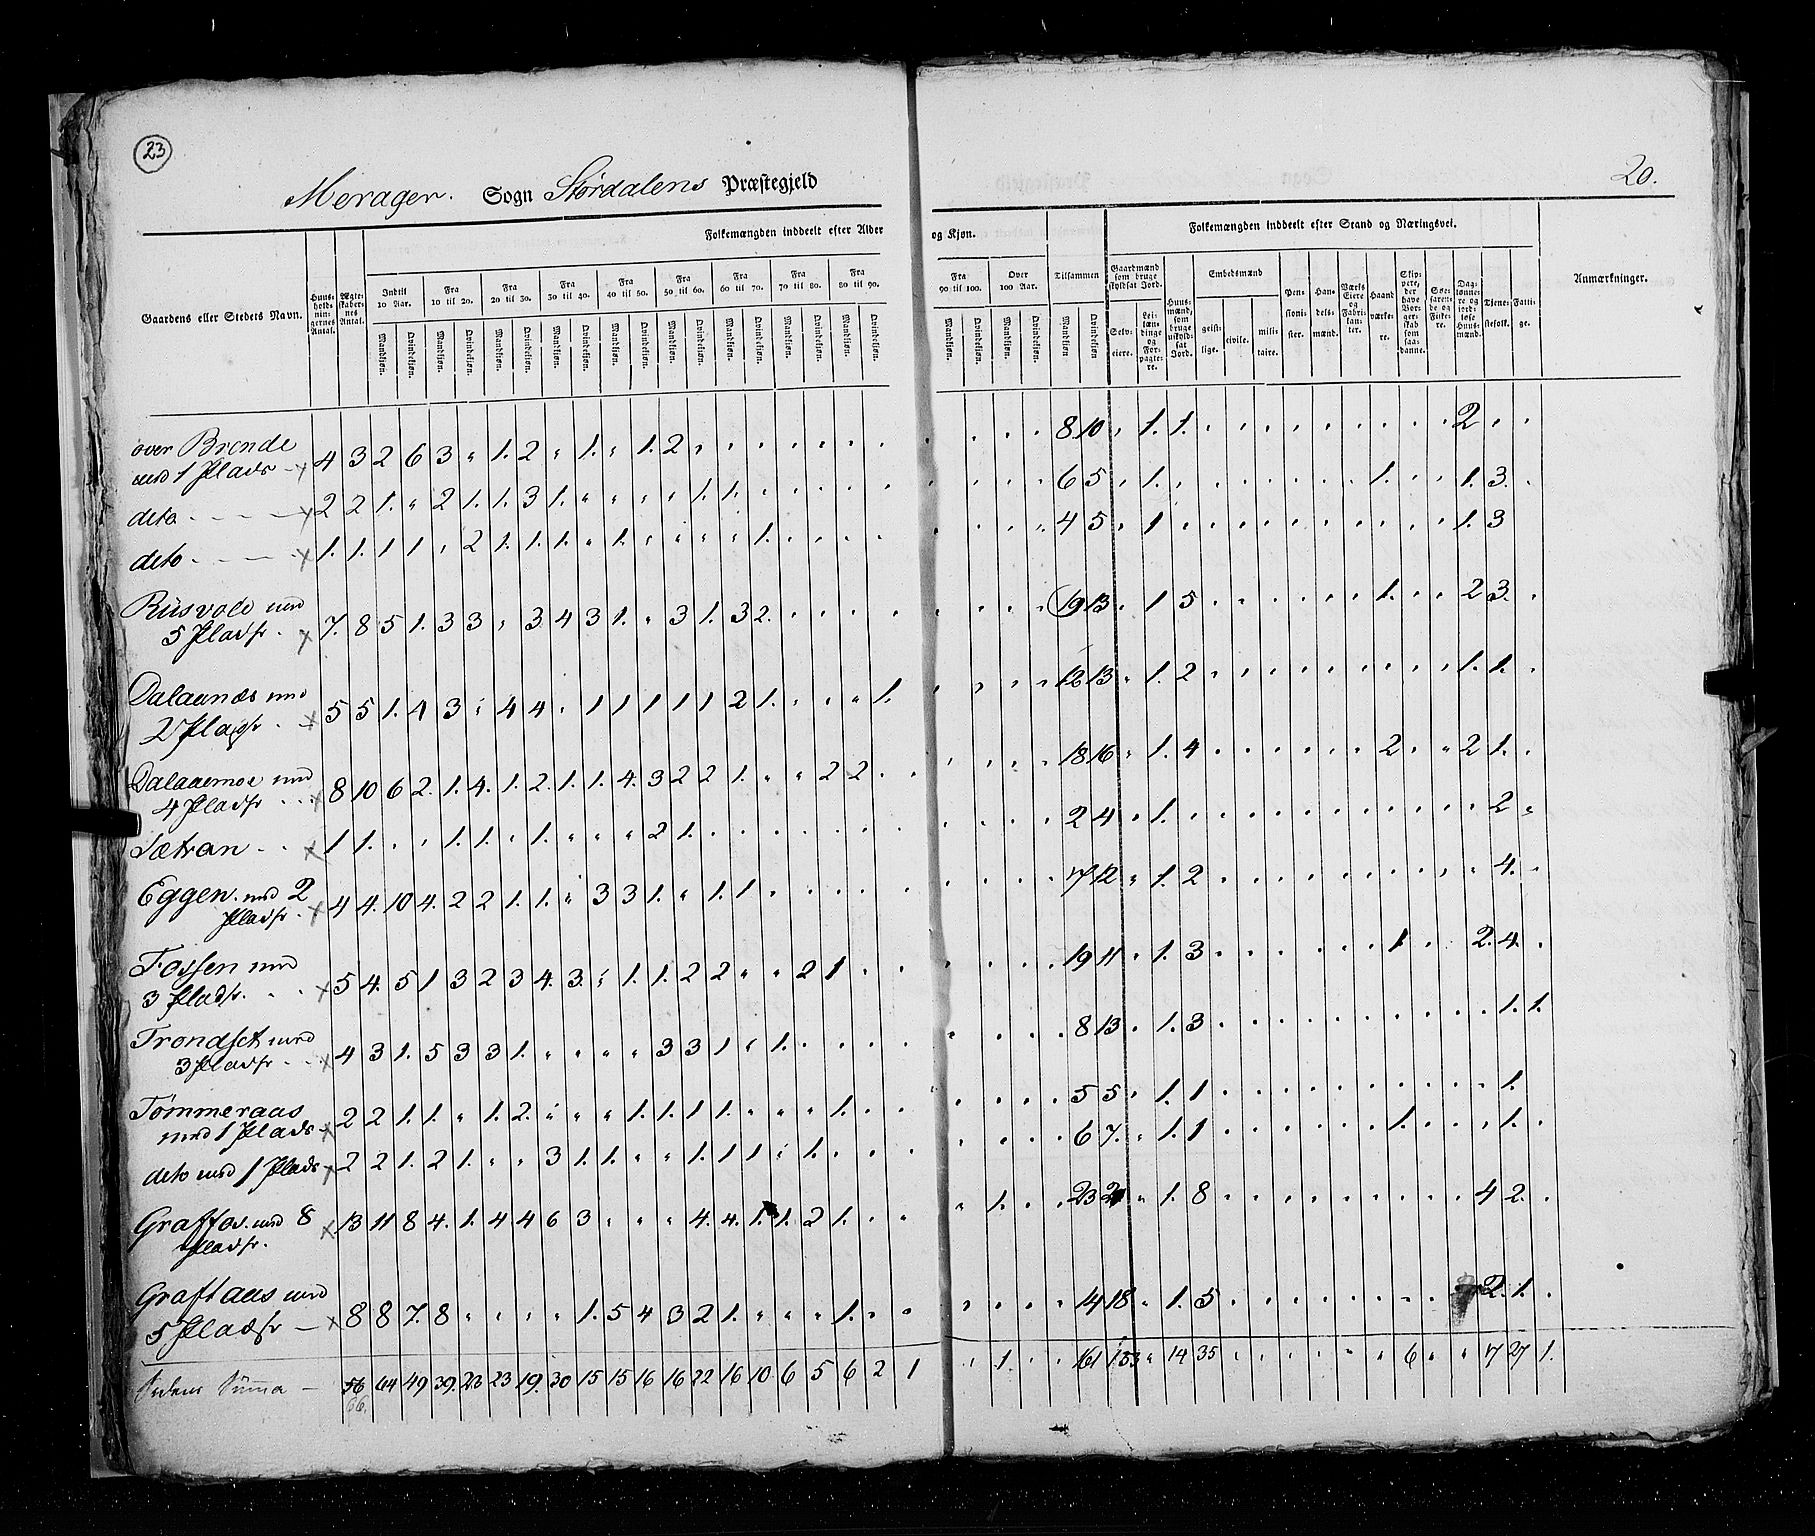 23
Merager. Sogn Størdalens Præstegjeld
20.
Folkemængden inddeelt efter Alder og Kjøn.
Folkemængden inddeelt efter Stand og Næringsvei.
Gaardens eller Stedets Navn.
Huus-holdningernes Antal.
Ægteskabernes Antal.
Indtil 10 Aar.
Fra 10 til 20.
Fra 20 til 30.
Fra 30 til 40.
Fra 40 til 50.
Fra 50 til 60.
Fra 60 til 70.
Fra 70 til 80.
Fra 80 til 90.
Fra 90 til 100.
Over 100 Aar.
Tilsammen
Mandkjøn. Qvindekjøn.
Gaardmænd som bruge skyldsat Jord.
Selveiere.
Leilændinge og Forpagtere.
Huusmænd, som bruge uskyldsat Jord.
Embedsmænd
geistlige. civile. militaire.
Pensionister.
Handelsmænd.
Værks Eiere og Fabrikanter.
Haandværkere.
Skippere, der have Borgerskab som saadanne.
Søefarende og Fiskere.
Daglønnere og jordløse Huusmænd.
Tjenestefolk.
Fattige.
Anmærkninger.
over Brende
med 1 Plads 4 3 2 6 3 „ 1. 2 „ 1. „ 1. 2 8 10 „ 1. 1. 2
deto 2 2 1. „ 2 1. 1. 3 1. „ „ „ „ 1. 1. 6 5 „ 1. 1. 1. 3.
deto 1. 1. 1 1 „ 2 1. 1. 1. „ 1. „ „ „ „ 1. 4 5 „ 1 1. 3
Rusvold med
5 Pladse 7. 8 5 1. 3 3 „ 3 4 3 1. „ 3 1. 3 2. 19 13 „ 1 5 1. 2 3.
Dalaanæs med
2 Pladse 5 5 1. 4 3 „ 4 4 „ 1 1 1 1 1 2 1. „ „ „ 1. 12 13 „ 1. 2 1. 1.
Dalaaemoe med
4 Pladse 8 10 6 2. 1. 4. 1. 2. 1. 1. 4. 3 2 2 1. „ „ 2 2 18 16 „ 1. 4 2 2 1.
Sætran 1 1. „ „ 1. 1. „ 1. „ „ „ 2 1. 2 4 „ 1. 2
Eggen med 2
Pladse 4 4. 10 4. 2 2 1. 1. „ 3 3 1. „ 1. 1 17 12 „ 1. 2 4.
Fossen med
3 Pladse 5 4. 5 1 3 2 3 4. 3. „ 1. 1. 2 2 „ „ 2 1 19 11 „ 1. 3 1 2. 4.
Trondset med
3 Pladse 4 3 1. 5 3 3 1. „ „ „ „ 3 3 1 „ 1. 8 13 „ 1. 3 1. 1.
Tømmeraas
med 1 Plads 2 2 1. 1. „ 1. 2. „ „ „ 1. 1. 1 1. „ „ „ 1. 5 5 „ 1. 1 1.
deto med 1 Plads 2 2 1. 2 1. „ „ 3 1. 1. „ „ 1. 1 1 „ 1. 6 7. „ 1. 1 1. 1.
Graftos med 8
Pladse. 13 11 8 4. 1. 4 4 6 3 „ „ „ 4. 4. 1. 1. 2 1. 1. 23 2 „ 1. 8 4 2.
Graftaas med
5 Pladse 8 8 7. 8 „ „ „ „ 1. 5 4 3 2 1. „ „ „ 1. 14 18 „ 1. 5 2. 1.
Sidens Summa 56 64 49 39. 23 23 19. 30 15 15 16 16 22 16 10 6 5 6 2 1 1. 161 153 „ 14 35 6 7 27 1.
66.